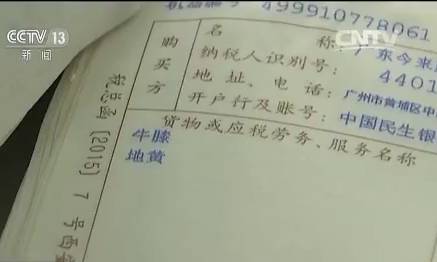 CCTV 13
新闻
CNTV
机器编号 499910778061
购买方
名称:广东今来
纳税人识别号:4401
地址、电话:广州市黄埔区中
开户行及账号:中国民生银
货物或应税劳务、服务名称
牛膝
地黄
〔2015〕7号